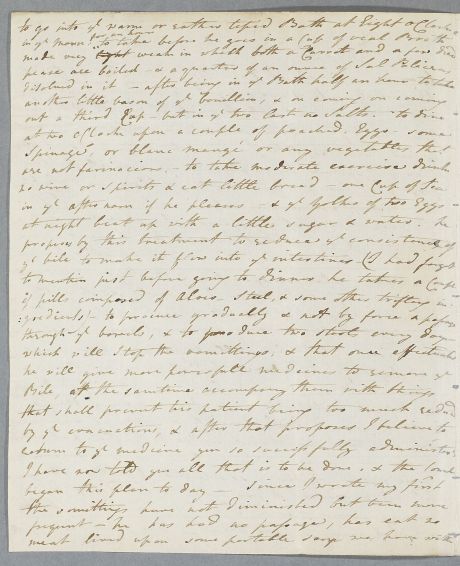 to go into yͤ warm or rather tepid Bath at Eight o'Clock
in yͤ morn: for an hour to take before he goes in a Cup of veal Broth
made very weak in which both a Carrot and a few dried
pease are boiled & a quarter of an ounce of Sal
disolved in it – after being in yͤ Bath half an hour to take
another little bason of yͤ bouillon, & on coming
out a third Cup – but in yͤ two last no Salts – to dine
at two o'Clock upon a couple of poached Eggs – some
Spinage, or blanc mangé or any vegetables that
are not farinacious. – to take moderate exercise drink
no wine or spirits & eat little bread – one Cup of Tea
in yͤ afternoon if he pleases – & yͤ yolks of two Eggs
at night beat up with a little sugar & water. he
proposes by this treatment to reduce yͤ consistence of
yͤ bile to make it flow into yͤ intestines (I had forgot
to mention just before going to dinner he takes a Couple
of pills composed of Aloes Steel, & some other trifling in:
:gredients) – to procure gradually & not by force a passage
through yͤ bowels, & to produce two stools every day
which will stop the vomittings, & that once effected
he will give more powerfull medicines to remove yͤ
Bile, at the sametime accompany them with things
that shall prevent his patient being too much reduced
by yͤ evacuations, & after that proposes I believe to
return to yͤ medicine you so successfully administer'd
I have now told you all that is to be done, & the
began this plan to day – since I wrote my first
the vomittings have not diminished but been more
frequent – he has had no passages, has eat no
meat lived upon some portable soup we have with